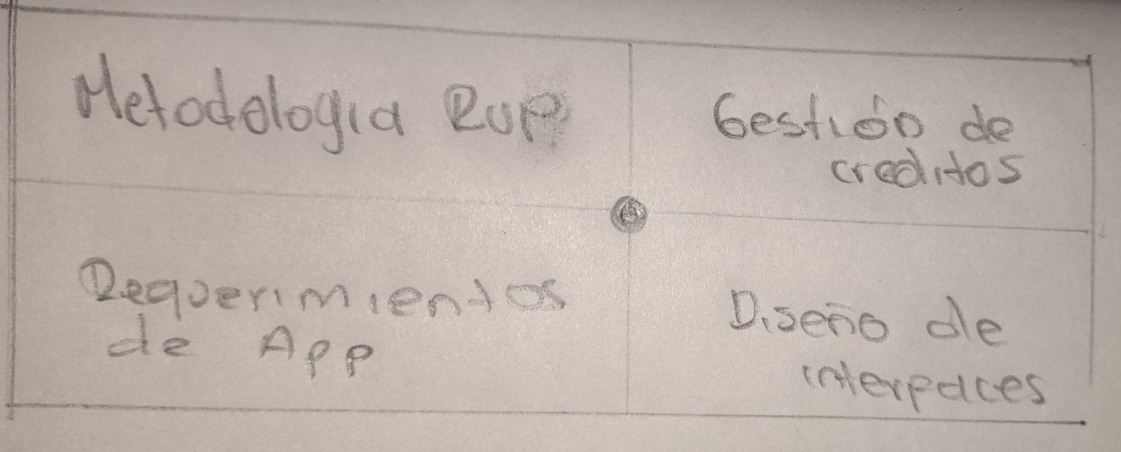 Metodologia RUP
Gestión de
creditos
Requerimientos
de App
Diseño de
interfaces